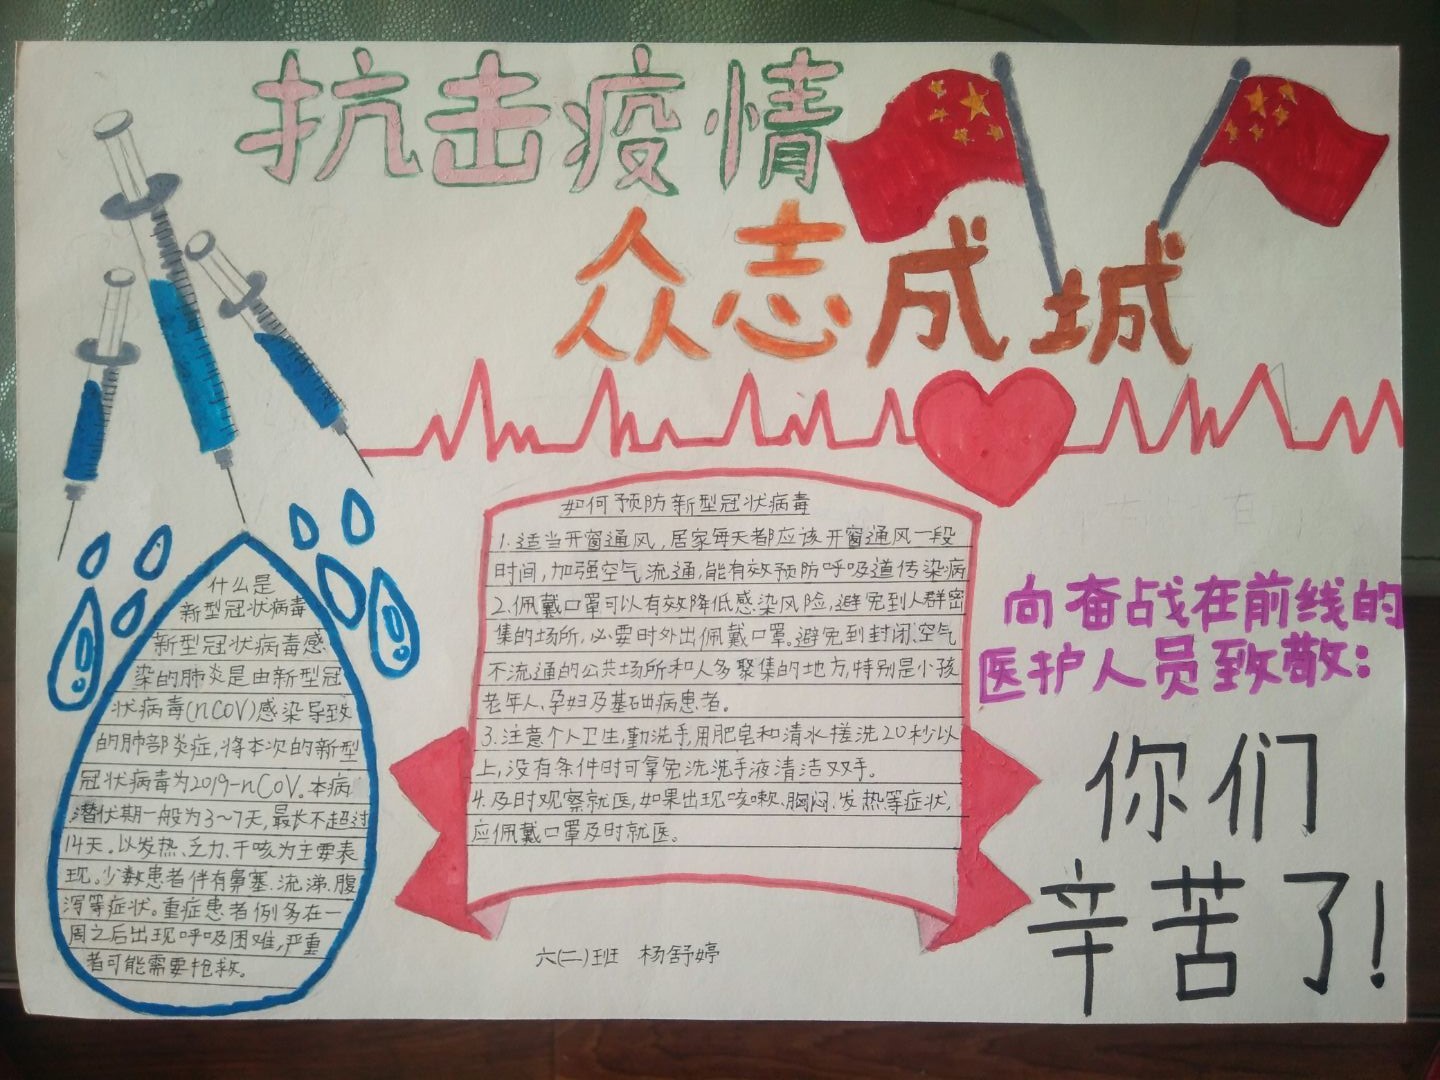 抗击疫情
众志成城
什么是
新型冠状病毒
新型冠状病毒感
染的肺炎是由新型冠
状病毒(nCoV)感染导致
的肺部炎症,将本次的新型
冠状病毒为2019-nCoV。本病
潜伏期一般为3~7天,最长不超过
14天。以发热、乏力、干咳为主要表
现。少数患者伴有鼻塞、流涕、腹
泻等症状。重症患者例多在一
周之后出现呼吸困难,严重
者可能需要抢救。
如何预防新型冠状病毒
1.适当开窗通风,居家每天都应该开窗通风一段
时间,加强空气流通,能有效预防呼吸道传染病
2.佩戴口罩可以有效降低感染风险,避免到人群密
集的场所,必要时外出佩戴口罩。避免到封闭、空气
不流通的公共场所和人多聚集的地方,特别是小孩
老年人、孕妇及基础病患者。
3.注意个人卫生,勤洗手,用肥皂和清水搓洗20秒以
上,没有条件时可拿免洗洗手液清洁双手。
4.及时观察就医,如果出现咳嗽、胸闷、发热等症状,
应佩戴口罩及时就医。
六(二)班 杨舒婷
向奋战在前线的
医护人员致敬:
你们
辛苦了!